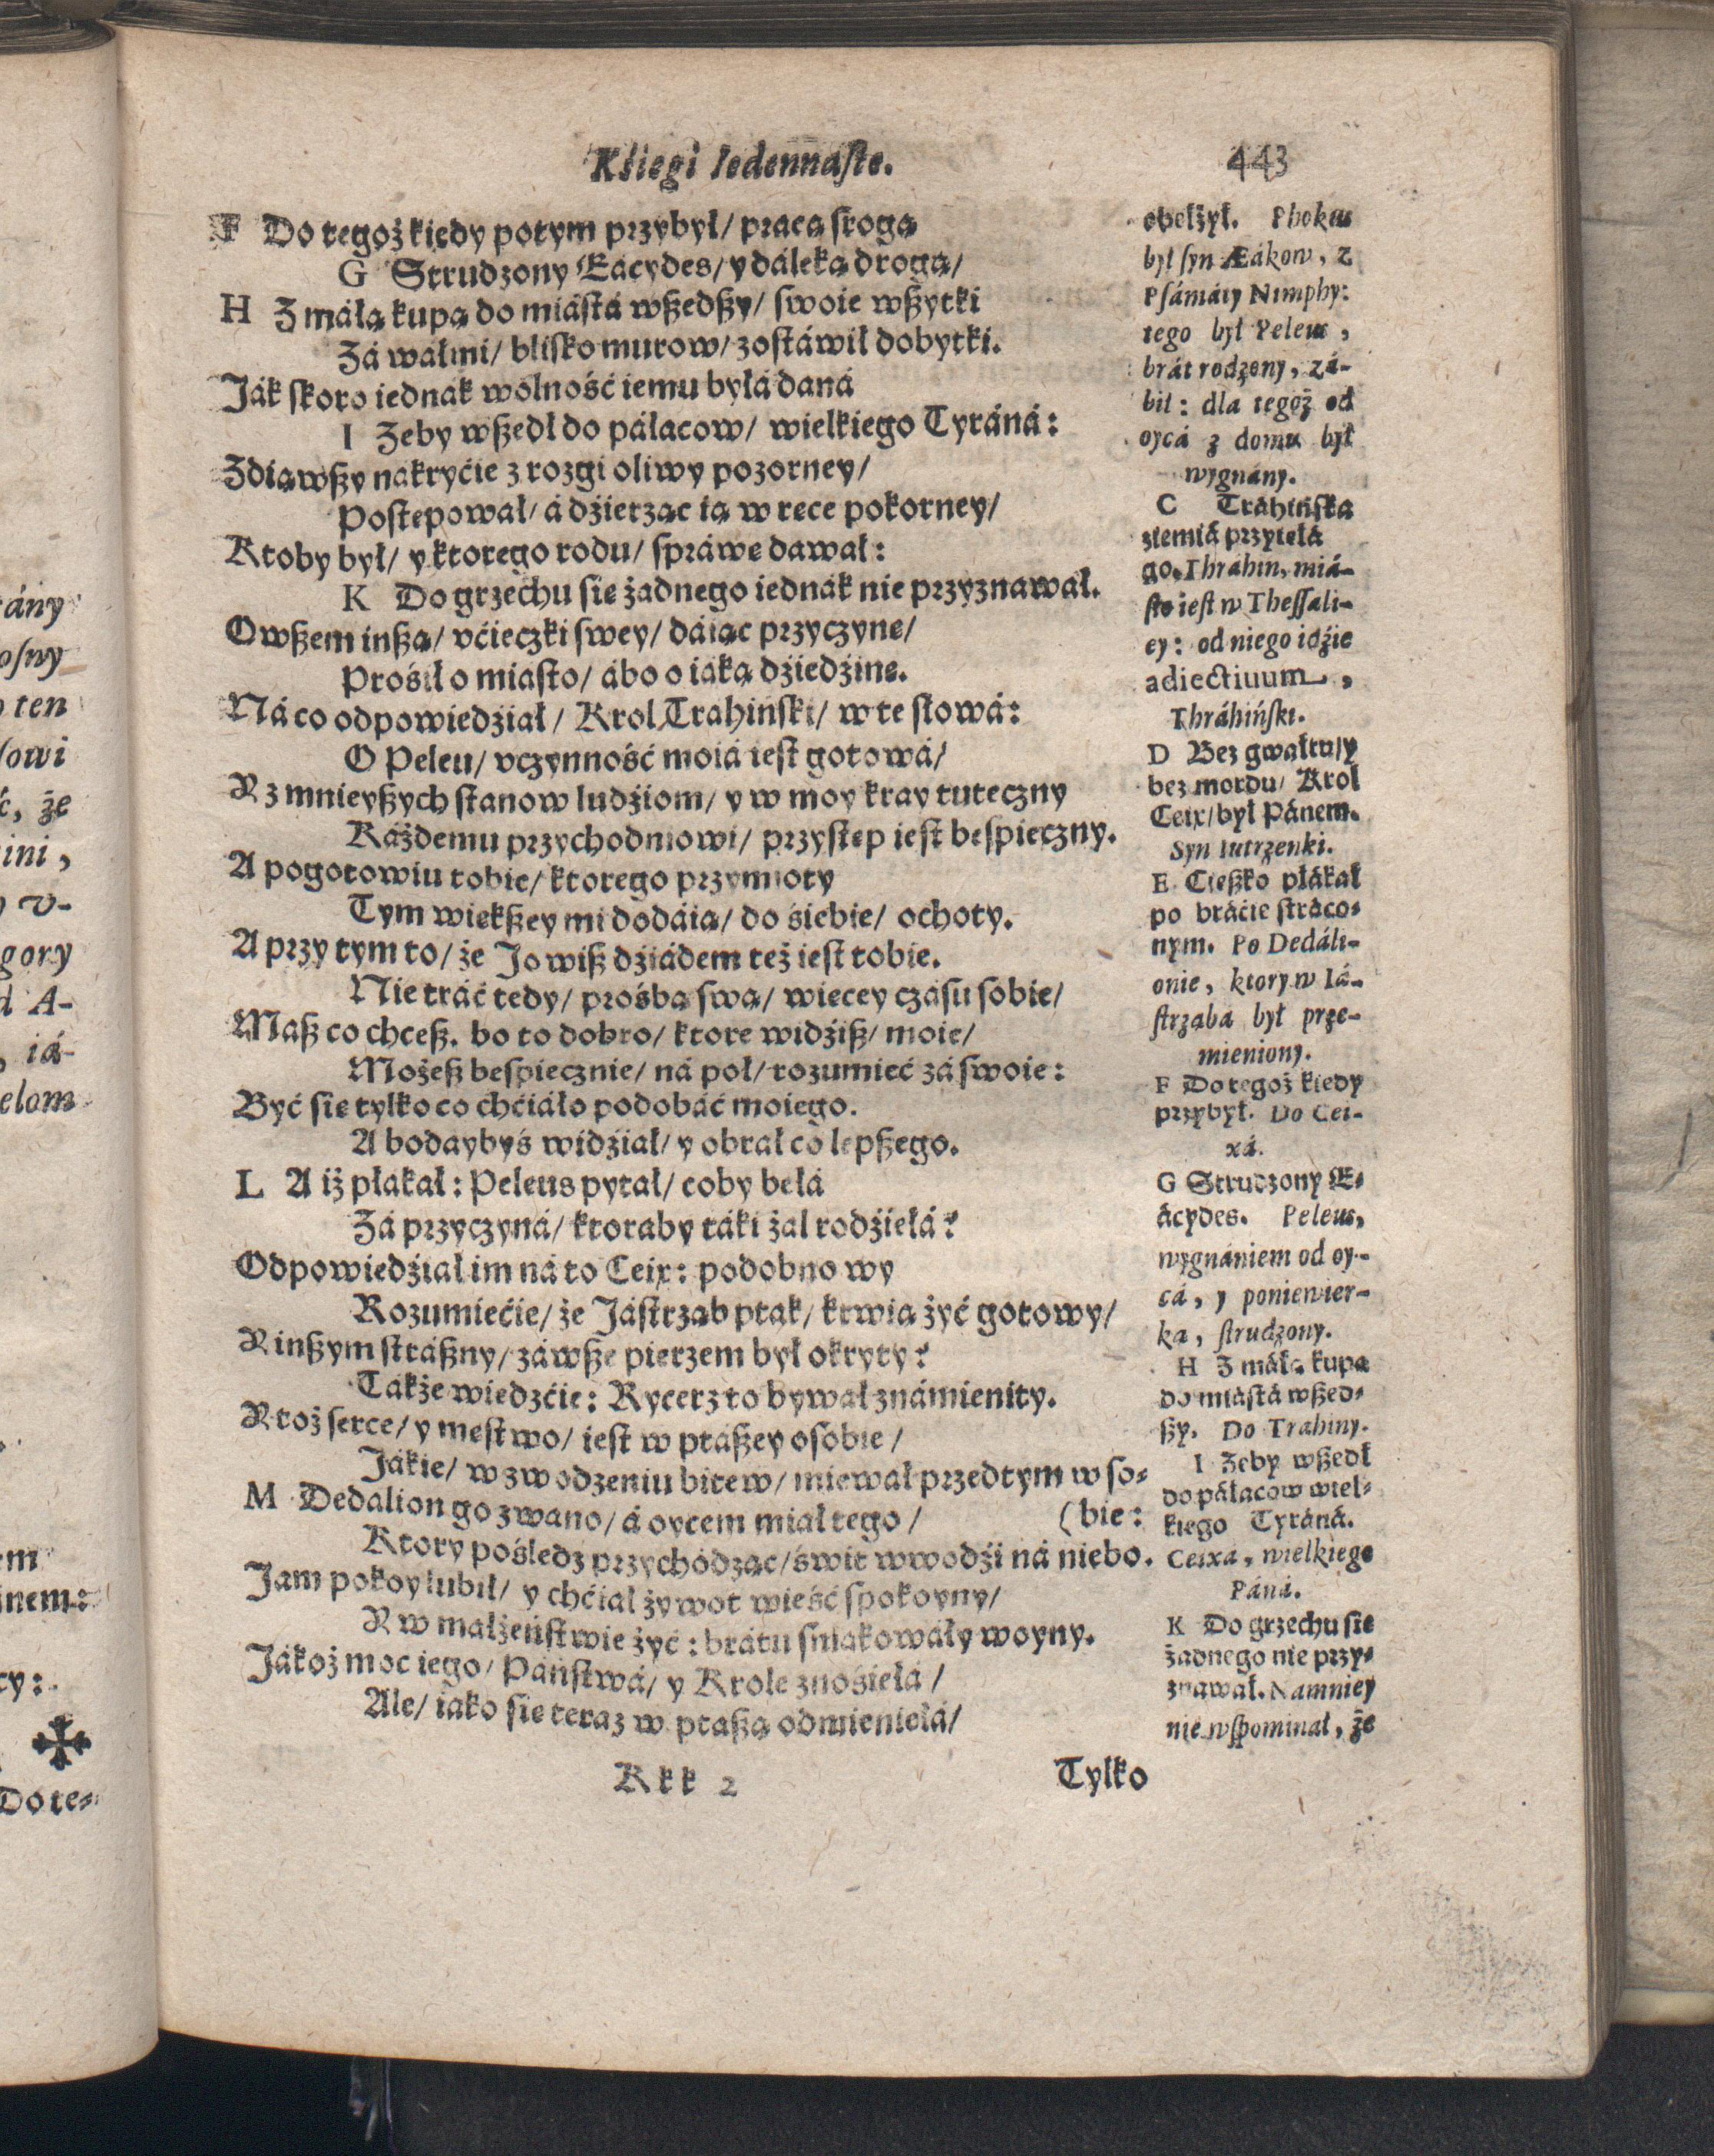 Kśiegi Iedennaſte. 443
F Do tegoż kiedy potym przybył/ pracą ſrogą
G Strudzony Eácydes/ y dáleką drogą/
H Z máłą kupą do miáſtá wßedßy/ swoie wßytki
Zá wałmi/ bliſko murow/ zoſtáwił dobytki.
Ják ſkoro iednák wolność iemu byłá daná
I Zeby wßedł do páłacow/ wielkiego Tyráná:
Zdiąwßy nakryćie z rozgi oliwy pozorney/
Poſtepował/ á dźierząc ią w rece pokorney/
Ktoby był/ y ktorego rodu/ ſpráwe dawał:
K Do grzechu ſie żadnego iednák nie przyznawał.
Owßem inßą/ vćieczki ſwey/ dáiąc przyczyne/
Prośił o miaſto/ ábo o iáką dźiedźine.
Ná co odpowiedźiał/ Krol Trahińſki/ w te ſłowá:
O Peleu/ vczynność moiá ieſt gotowá/
Y z mnieyßych ſtanow ludźiom/ y w moy kray tuteczny
Każdemu przychodniowi/ przyſtep ieſt beſpieczny.
A pogotowiu tobie/ ktorego przymioty
Tym wiekßey mi dodáią/ do śiebie/ ochoty.
A przy tym to/ że Jowiß dźiádem też ieſt tobie.
Nie tráć tedy/ prośbą ſwą/ wiecey czáſu ſobie/
Maß co chceß. bo to dobro/ ktore widźiß/ moie/
Możeß beſpiecznie/ ná poł/ rozumieć zá ſwoie:
Być ſie tylko co chćiáło podobáć moiego.
A bodaybyś widźiał/ y obrał co lepßego.
L A iż płakał: Peleus pytał/ coby belá
Zá przyczyná/ ktoraby táki żal rodźiełá?
Odpowiedźiał im ná to Ceix: podobno wy
Rozumiećie/ że Jáſtrząb ptak/ krwią żyć gotowy/
Y inßym ſtráßny/ záwße pierzem był okryty?
Tákże wiedzćie: Rycerz to bywał známienity.
Y toż ſerce/ y meſtwo/ ieſt w ptaßey oſobie/
Jákie/ w zwodzeniu bitew/ miewał przedtym w ſo-
M Dedalion go zwano/ á oycem miał tego/ (bie:
Ktory pośledz przychodząc/ świt wwodźi ná niebo.
Jam pokoy lubił/ y chćiał żywot wieść ſpokoyny/
Y w małżeńſtwie żyć: brátu ſmákowáły woyny.
Jákoż moc iego/ Páńſtwá/ y Krole znośiełá/
Ale/ iako ſie teraz w ptaßą odmieniełá/
Kkk 2 Tylko
obełżył. Phokus
był ſyn Æákow, z
Pſámáty Nimphy:
tego był Peleus,
brát rodzony, zá-
bił: dla tegoż od
oycá z domu był
wygnány.
C Tráhińſka
ziemiá przyiełá
go. Thráhin, miá-
ſto ieſt w Theſſali-
ey: od niego idźie
adiectiuum,
Thráhińſki.
D Bez gwałtu/ y
bez mordu/ Krol
Ceix/ był Pánem.
Syn Iutrzenki.
E Cießko płákał
po bráćie ſtráco-
nym. Po Dedáli-
onie, ktory w Iá-
ſtrząbá był prze-
mieniony.
F Do tegoż kiedy
przybył. Do Cei-
xá.
G Strudzony E-
ácydes. Peleus,
wygnániem od oy-
cá, y poniewier-
ką, ſtrudzony.
H Z máłą kupą
do miáſtá wßed-
ßy. Do Trahiny.
I Zeby wßedł
do páłacow wiel-
kiego Tyráná.
Ceixá, wielkiego
Páná.
K Do grzechu ſie
żadnego nie przy-
znawał. Namniey
nie wſpominał, że
ány
oſny
ten
ſowi
ć, że
ini,
y v-
gory
d A-
, iá-
elom
em
inem:
cy:
Do te-